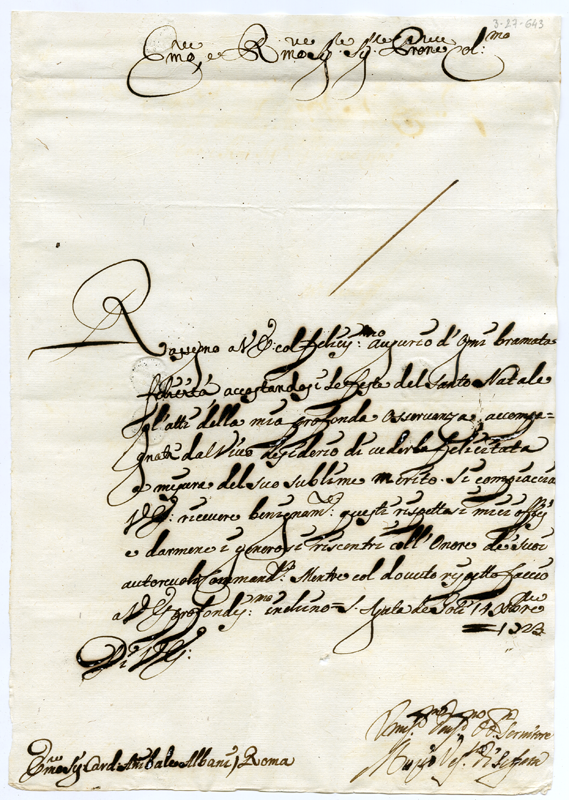 3-27-643
Emo, e Rmo Sig.r Sig.r Prone Col:mo
Rassegno a V.E: col felicis:mo augurio d'ogni bramata
felicità accostandosi le feste del Santo Natale
gl'atti della mia profonda osservanza, accompa-
gnati dal vivo desiderio di vederla felicitata
a misura del suo sublime merito. Si compiaccia
V.E: ricevere benignam.te questi rispettosi miei off
e darmene i generosi riscontri coll'Onore de suoi
autorevoli Command.ti Mentre col dovuto rispetto faccio
a V.E: profondis:mo inchino = S. Agata de Goti 14 Xbre
Di V.E:
Servitore
Emo Sig. Card: Anibale Albani) Roma